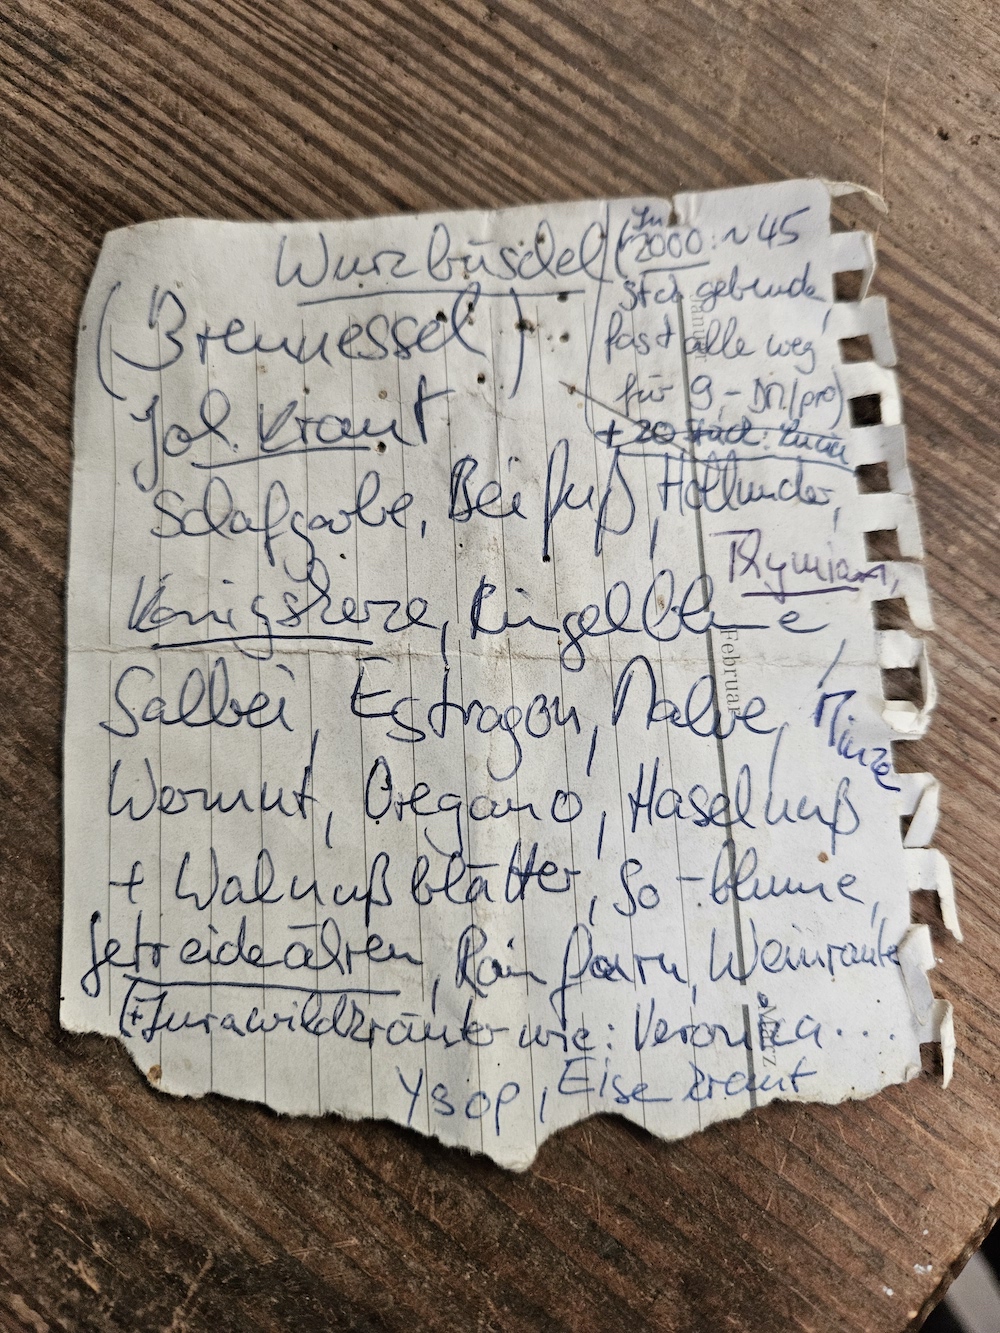 Wurzbüschel
(In
2000: ~ 45
Stck gebunden,
fast alle weg
für 9,- DM/pro)
+ 20 Stück:
(Brennessel)
Joh. kraut
Schafgarbe, Beifuß, Hollunder,
Thymian,
Königskerze, Ringelblume,
Salbei, Estragon, Malve, Minze
Wermut, Oregano, Haselnuß
+ Walnußblätter, So-blume,
Getreideähren, Rainfarn, Weinraute
(+Jurawildkräuter wie: Veronica...
Ysop, Eisenkraut
Januar
Februar
März